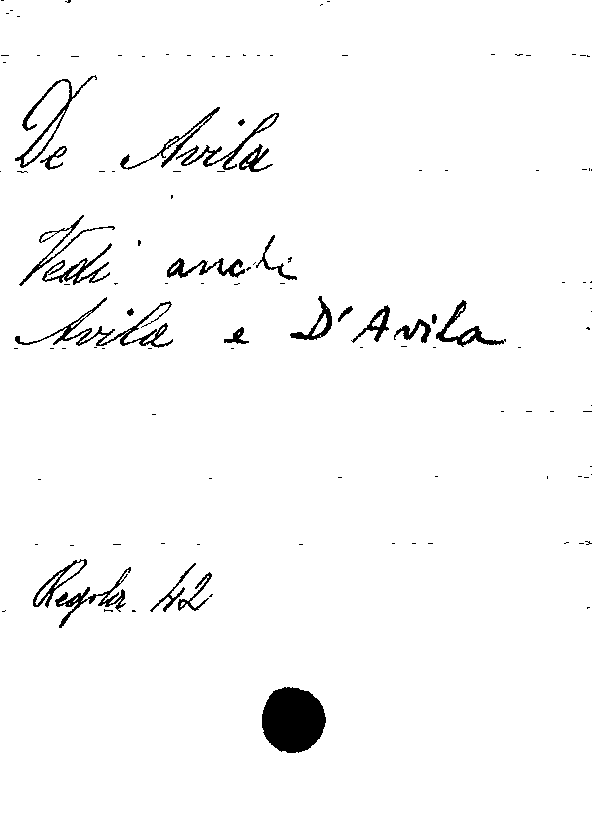 De Avila
Vedi anche
Avila e D'Avila
Regola 42